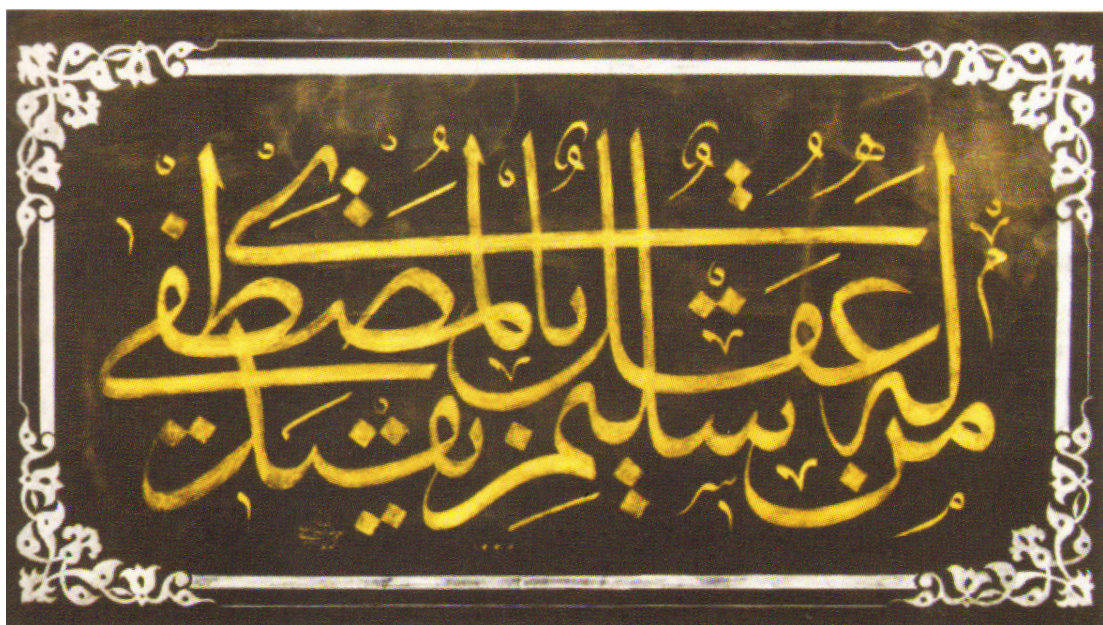 من له عقل سليم يقتدي بالمصطفى